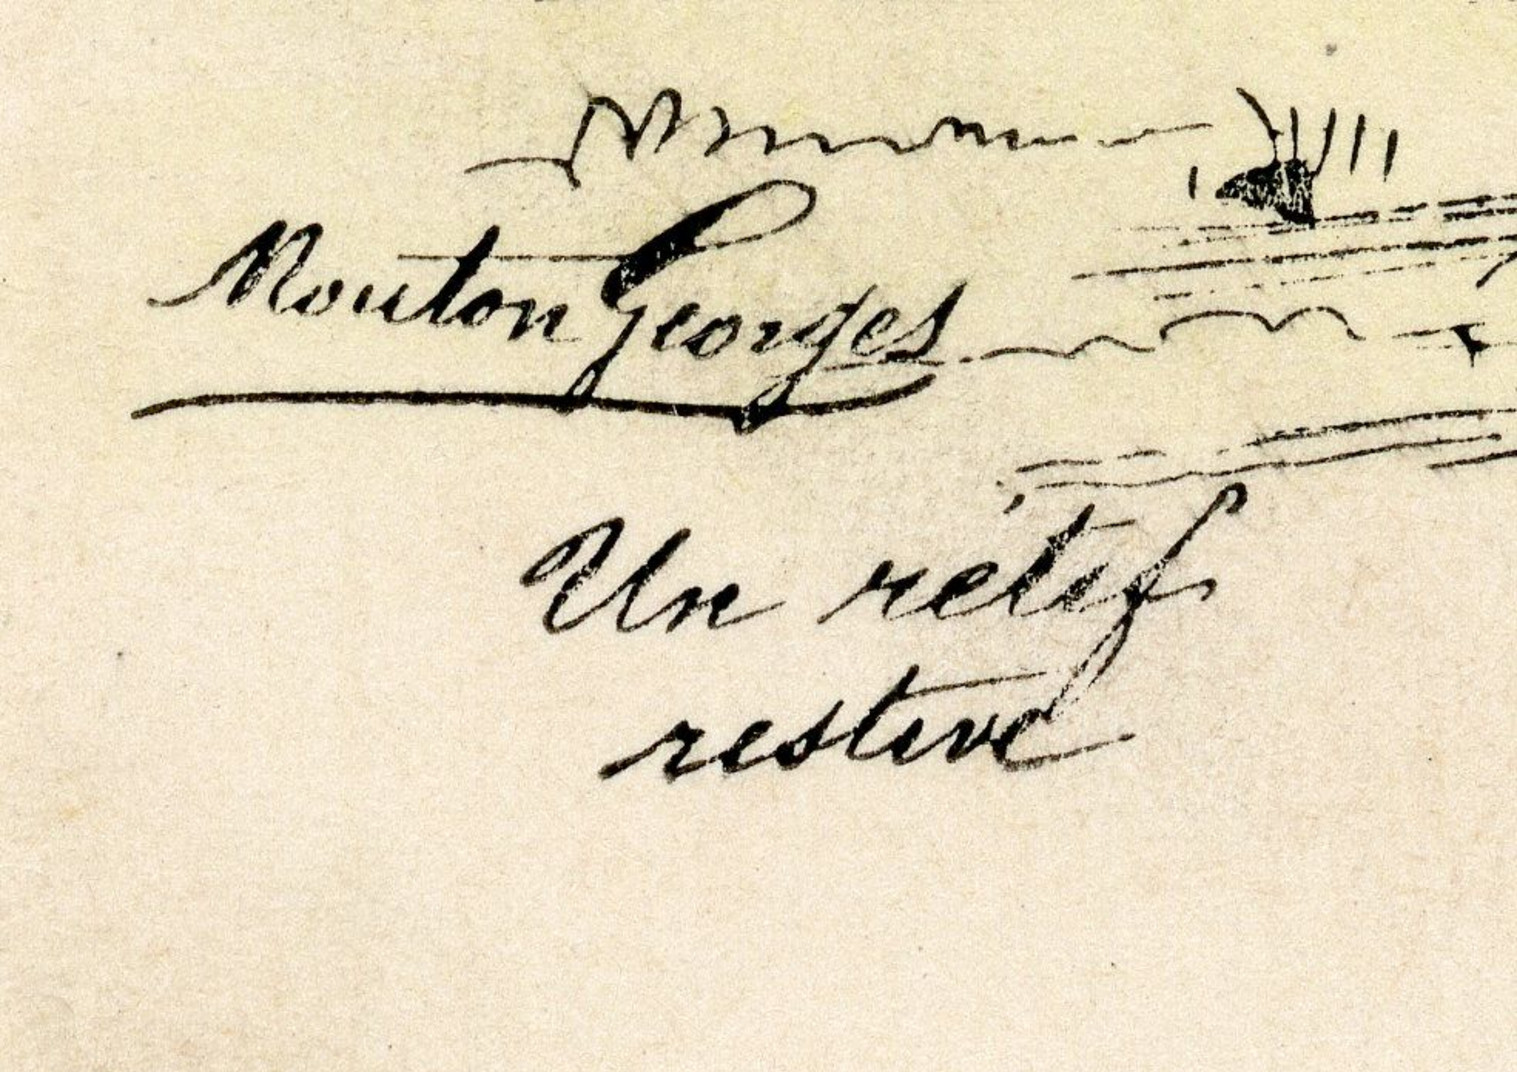 Mouton Georges
Un rétif
restive